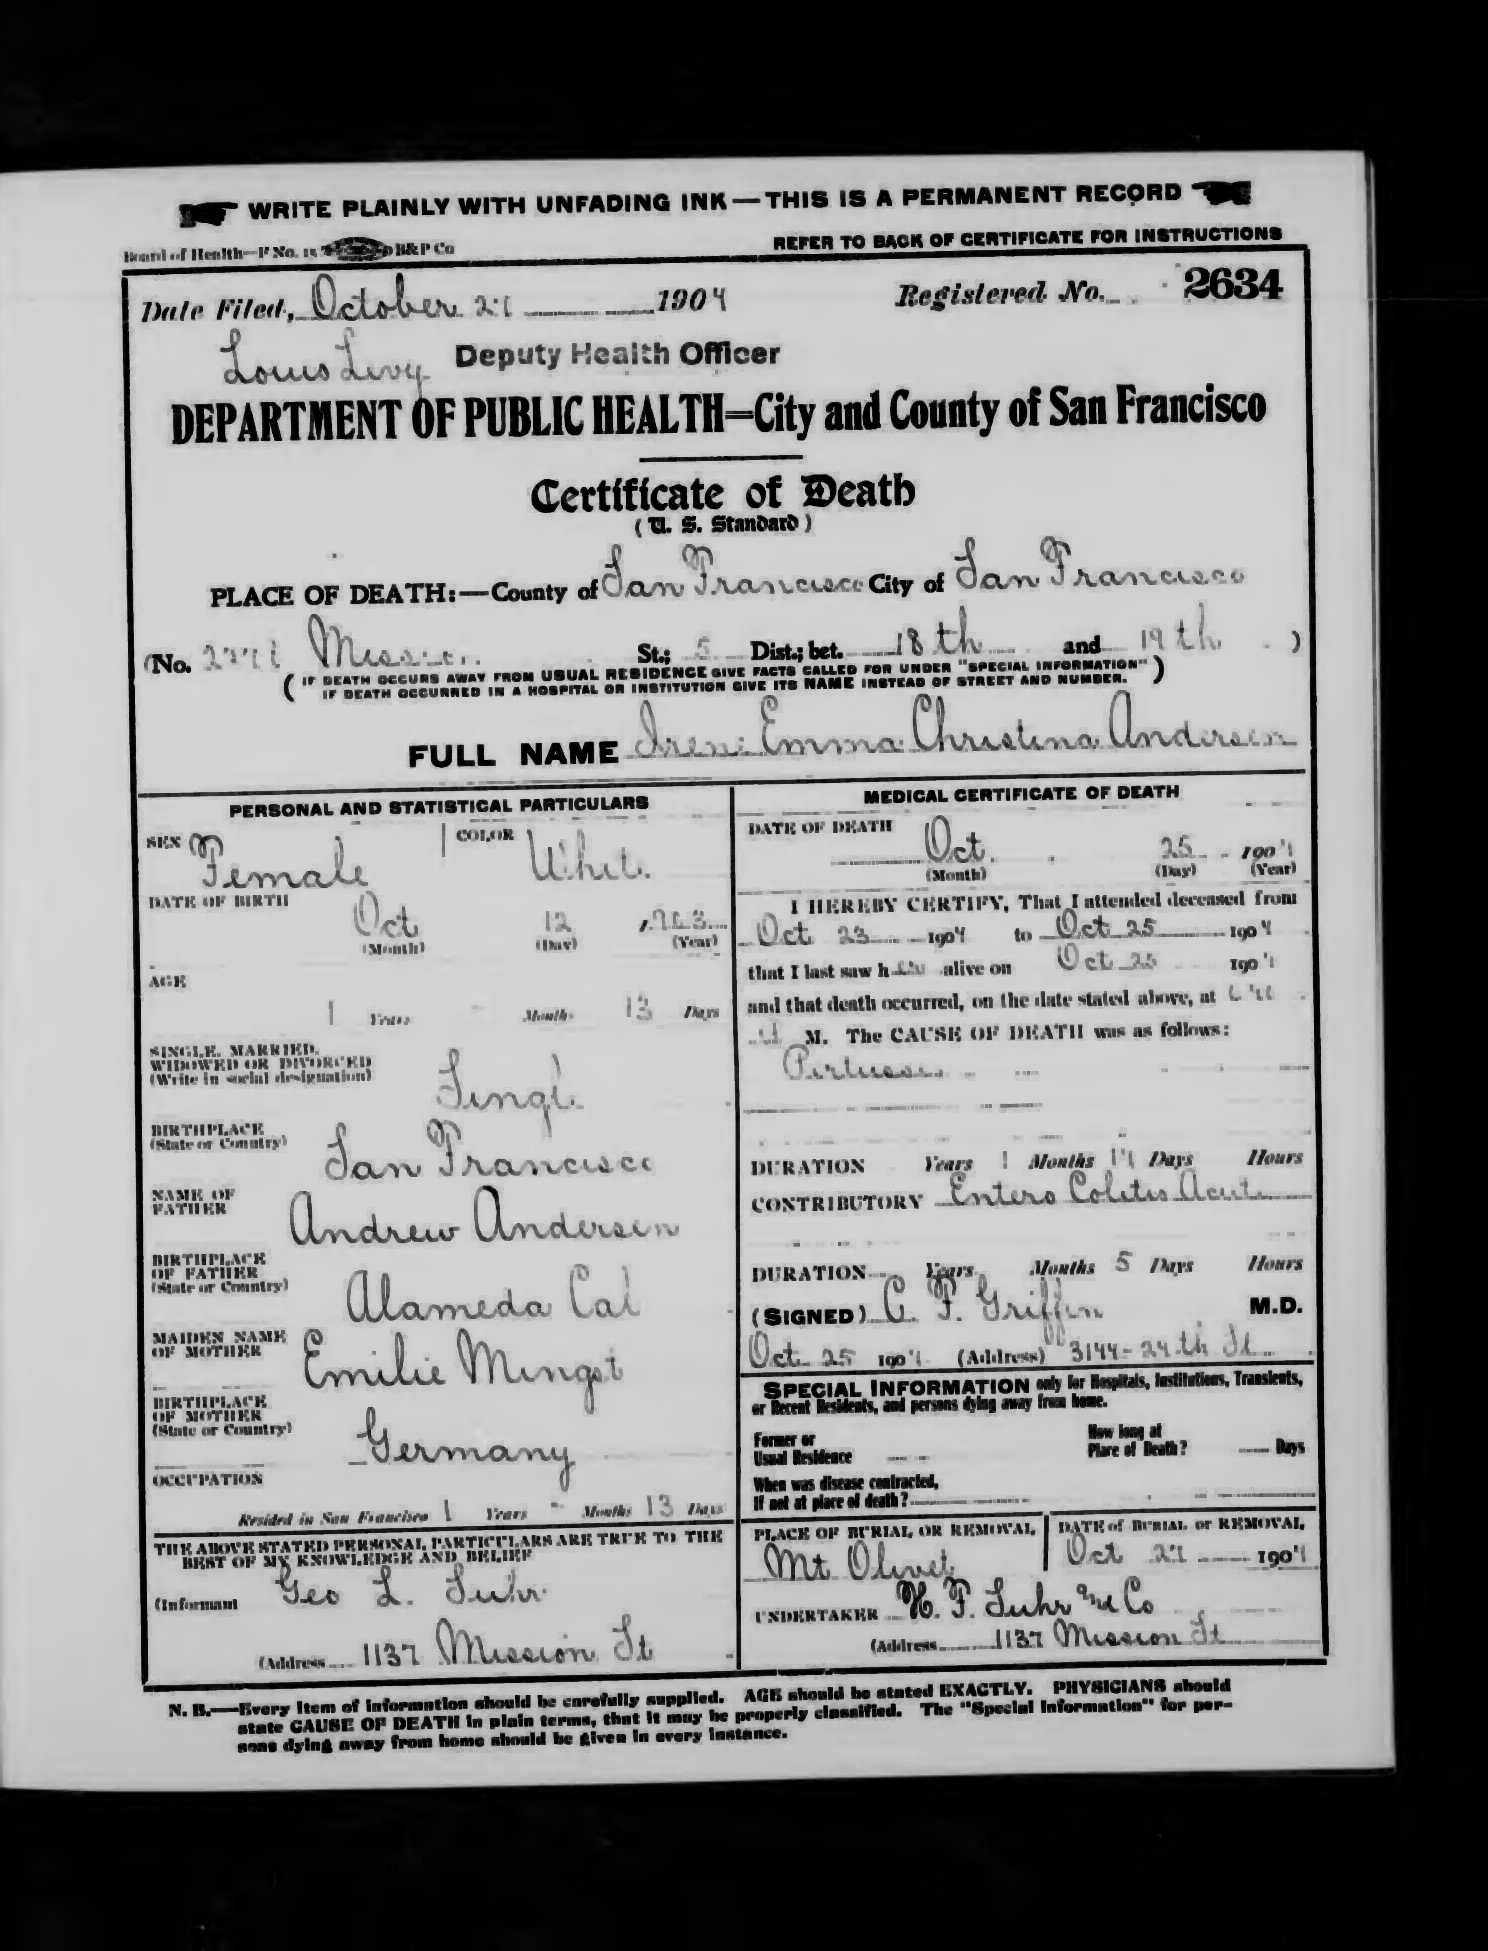 WRITE PLAINLY WITH UNFADING INK — THIS IS A PERMANENT RECORD
Board of Health—F No. 15 B&P Co REFER TO BACK OF CERTIFICATE FOR INSTRUCTIONS
Date Filed, October 27 1904 Registered No. 2634
Louis Levy Deputy Health Officer
DEPARTMENT OF PUBLIC HEALTH=City and County of San Francisco
Certificate of Death
(U. S. Standard)
PLACE OF DEATH:—County of San Francisco City of San Francisco
(No. Mission St.; 5 Dist.; bet. 18th and 19th )
(IF DEATH OCCURS AWAY FROM USUAL RESIDENCE GIVE FACTS CALLED FOR UNDER "SPECIAL INFORMATION"
IF DEATH OCCURRED IN A HOSPITAL OR INSTITUTION GIVE ITS NAME INSTEAD OF STREET AND NUMBER.)
FULL NAME Irene Emma Christina Andersen
PERSONAL AND STATISTICAL PARTICULARS
SEX Female COLOR White
DATE OF BIRTH Oct 12 1903
(Month) (Day) (Year)
AGE
1 Years - Months 13 Days
SINGLE, MARRIED,
WIDOWED OR DIVORCED
(Write in social designation) Single
BIRTHPLACE
(State or Country) San Francisco
NAME OF
FATHER Andrew Andersen
BIRTHPLACE
OF FATHER
(State or Country) Alameda Cal
MAIDEN NAME
OF MOTHER Emilie Mingst
BIRTHPLACE
OF MOTHER
(State or Country) Germany
OCCUPATION
Resided in San Francisco 1 Years - Months 13 Days
THE ABOVE STATED PERSONAL PARTICULARS ARE TRUE TO THE
BEST OF MY KNOWLEDGE AND BELIEF
(Informant Geo L. Suhr
(Address 1137 Mission St
MEDICAL CERTIFICATE OF DEATH
DATE OF DEATH
Oct. 25 1904
(Month) (Day) (Year)
I HEREBY CERTIFY, That I attended deceased from
Oct 23 1904 to Oct 25 1904
that I last saw h alive on Oct 25 1904
and that death occurred, on the date stated above, at
M. The CAUSE OF DEATH was as follows:
Pertussis
DURATION Years 1 Months 14 Days Hours
CONTRIBUTORY Entero Colitis Acute
DURATION Years Months 5 Days Hours
(SIGNED) C. F. Griffin M.D.
Oct 25 1904 (Address) 3144-24th St
SPECIAL INFORMATION only for Hospitals, Institutions, Transients,
or Recent Residents, and persons dying away from home.
Former or
Usual Residence
How long at
Place of Death? Days
When was disease contracted,
If not at place of death?
PLACE OF BURIAL OR REMOVAL
Mt Olivet
DATE of BURIAL or REMOVAL
Oct 27 1904
UNDERTAKER H. F. Suhr and Co
(Address 1137 Mission St
N. B.—Every item of information should be carefully supplied. AGE should be stated EXACTLY. PHYSICIANS should
state CAUSE OF DEATH in plain terms, that it may be properly classified. The "Special Information" for per-
sons dying away from home should be given in every instance.